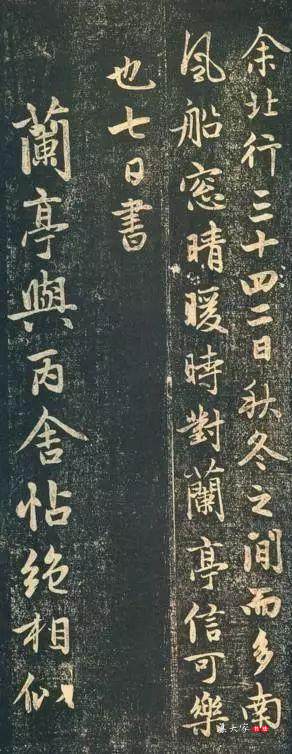 余北行三十二日秋冬之間而多南
風船窓晴暖時對蘭亭信可樂
也七日書
蘭亭與丙舍帖絶相似